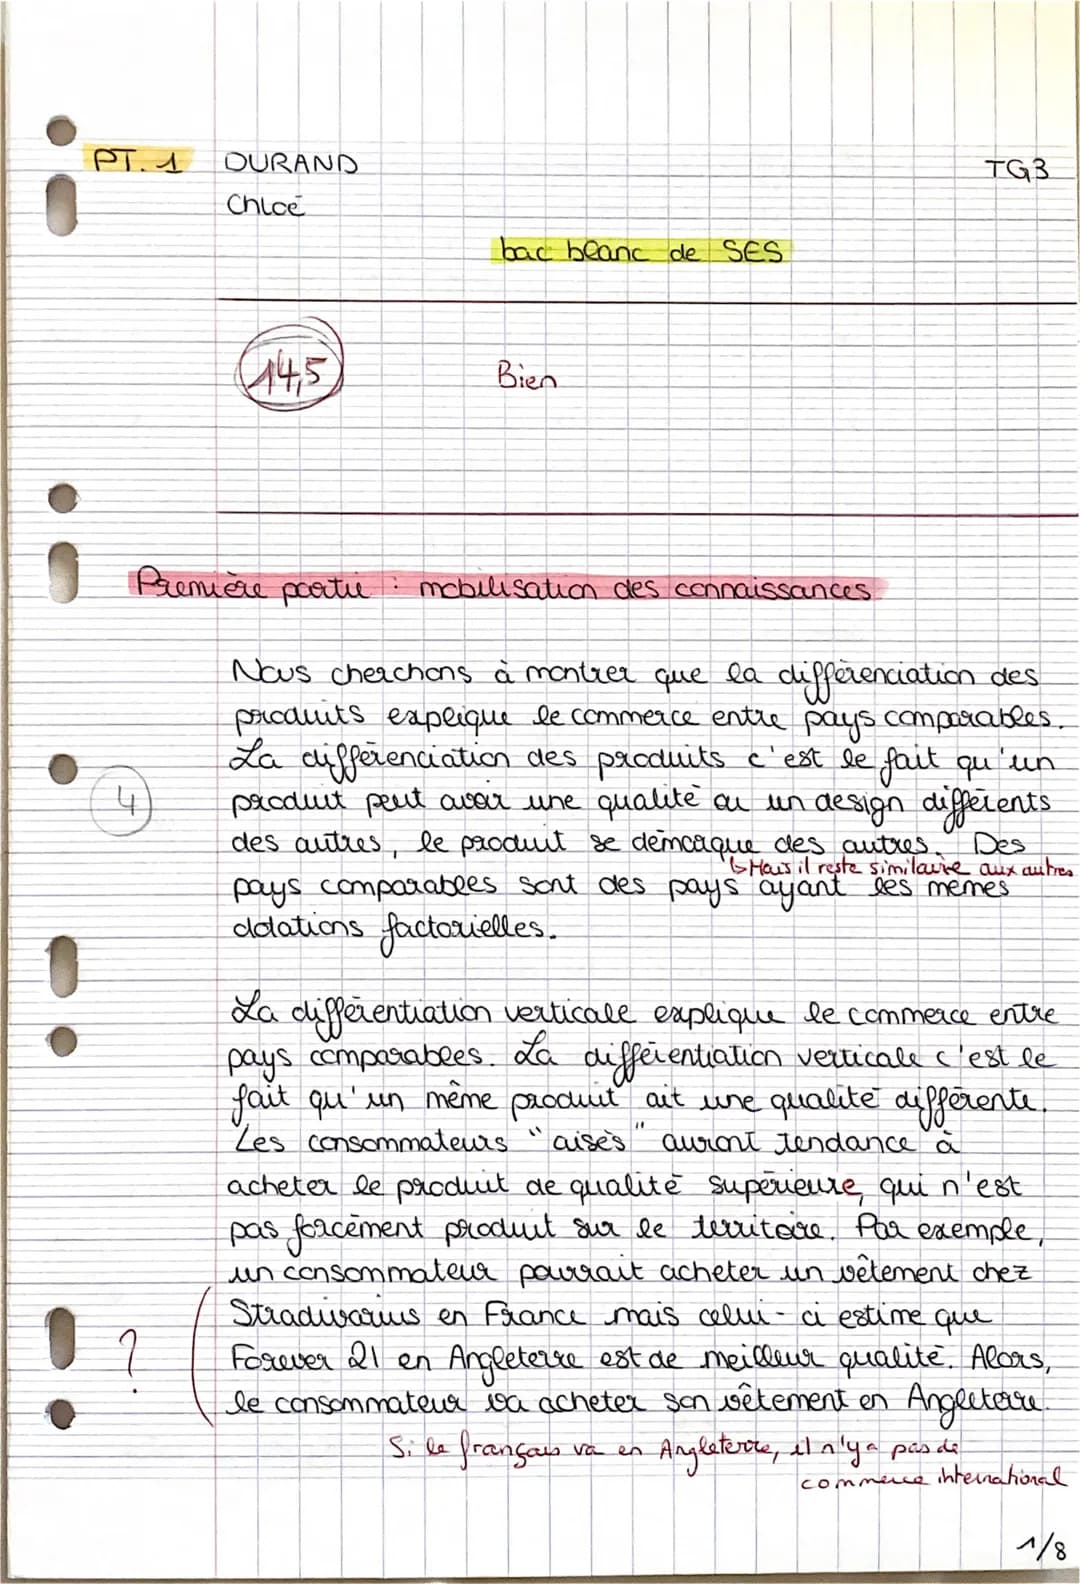 PT. 1 DURAND TG3
Chloé
bac blanc de SES
14,5 Bien
Première partie : mobilisation des connaissances
Nous cherchons à montrer que la différenciation des
produits explique le commerce entre pays comparables.
La différenciation des produits c'est le fait qu'un
4 produit peut avoir une qualité ou un design différents
des autres, le produit se démarque des autres. Des
↳ Mais il reste similaire aux autres
pays comparables sont des pays ayant les mêmes
dotations factorielles.
La différentiation verticale explique le commerce entre
pays comparables. La différentiation verticale c'est le
fait qu'un même produit ait une qualité différente.
Les consommateurs "aisés" auront tendance à
acheter le produit de qualité supérieure, qui n'est
pas forcément produit sur le territoire. Par exemple,
un consommateur pourrait acheter un vêtement chez
Stradivarius en France mais celui-ci estime que
? Forever 21 en Angleterre est de meilleur qualité. Alors,
le consommateur va acheter son vêtement en Angleterre.
Si le français va en Angleterre, il n'y a pas de
commerce international
1/8